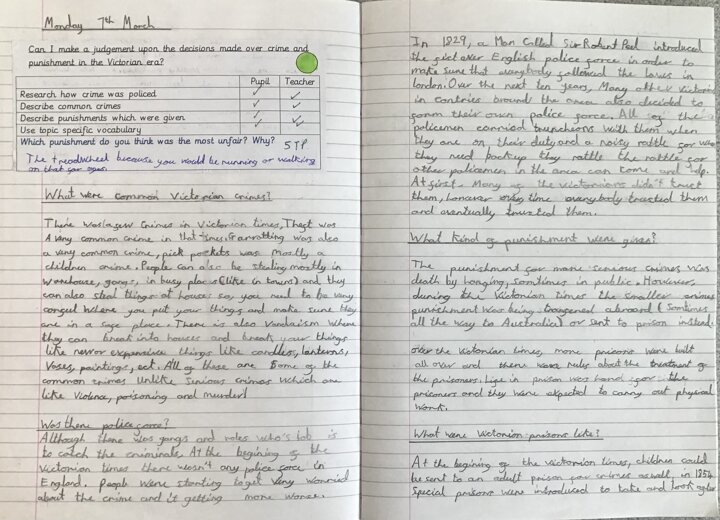 Monday 7th March
Can I make a judgement upon the decisions made over crime and
punishment in the Victorian era?
Pupil Teacher
Research how crime was policed ✓ ✓
Describe common crimes ✓ ✓
Describe punishments which were given ✓ ✓
Use topic specific vocabulary ✓
Which punishment do you think was the most unfair? Why? STP
The treadwheel because you would be running or walking
on that for ages.
What were common Victorian crimes?
There was a few crimes in Victorian times, Theft was
a very common crime in that times. Garrotting was also
a very common crime, pick pockets was mostly a
children crime. People can also be stealing mostly in
warehouse, gangs, in busy places (like in towns) and they
can also steal things at house so, you need to be very
careful where you put your things and make sure they
are in a safe place. There is also Vandaism where
they can break into houses and break your things
like new or expensive things like candles, lanterns,
Vases, paintings, ect. All of these are some of the
common crimes unlike serious crimes which are
like Violence, poisoning and murder!
Was there police force?
Although there was gangs and roles who's job is
to catch the criminals. At the begining of the
victorian times there wasn't any police force in
England. People were starting to get very worried
about the crime and it getting more worse.
In 1829, a Man Called Sir Robert Peel introduced
the first ever English police force in order to
make sure that everybody followed the laws in
london. Over the next ten years, Many other Victorians
in contries around the area also decided to
form their own police force. All of the
policemen carried truncheons with them when
they are on their duty and a noisy rattle for when
they need backup they rattle the rattle for
other policemen in the area can come and help.
At first, Many of the victorians didn't trust
them, however over time everybody trusted them
and eventually trusted them.
What kind of punishment were given?
The punishment for more serious crimes was
death by hanging, somtimes in public. However,
during the Victorian times the smaller crimes
punishment was being transpened abroard (Somtimes
all the way to Australia) or sent to prison instead.
over the victorian times, more prisons were built
all over and there were rules about the treatment of
the prisoners. Life in prison was hard for the
prisoners and they were expected to carry out physical
work.
What were Victorian prisons like?
At the begining of the victorian times, children could
be sent to an adult prison for crimes aswell, in 1854
special prisons were introduced to take and look after